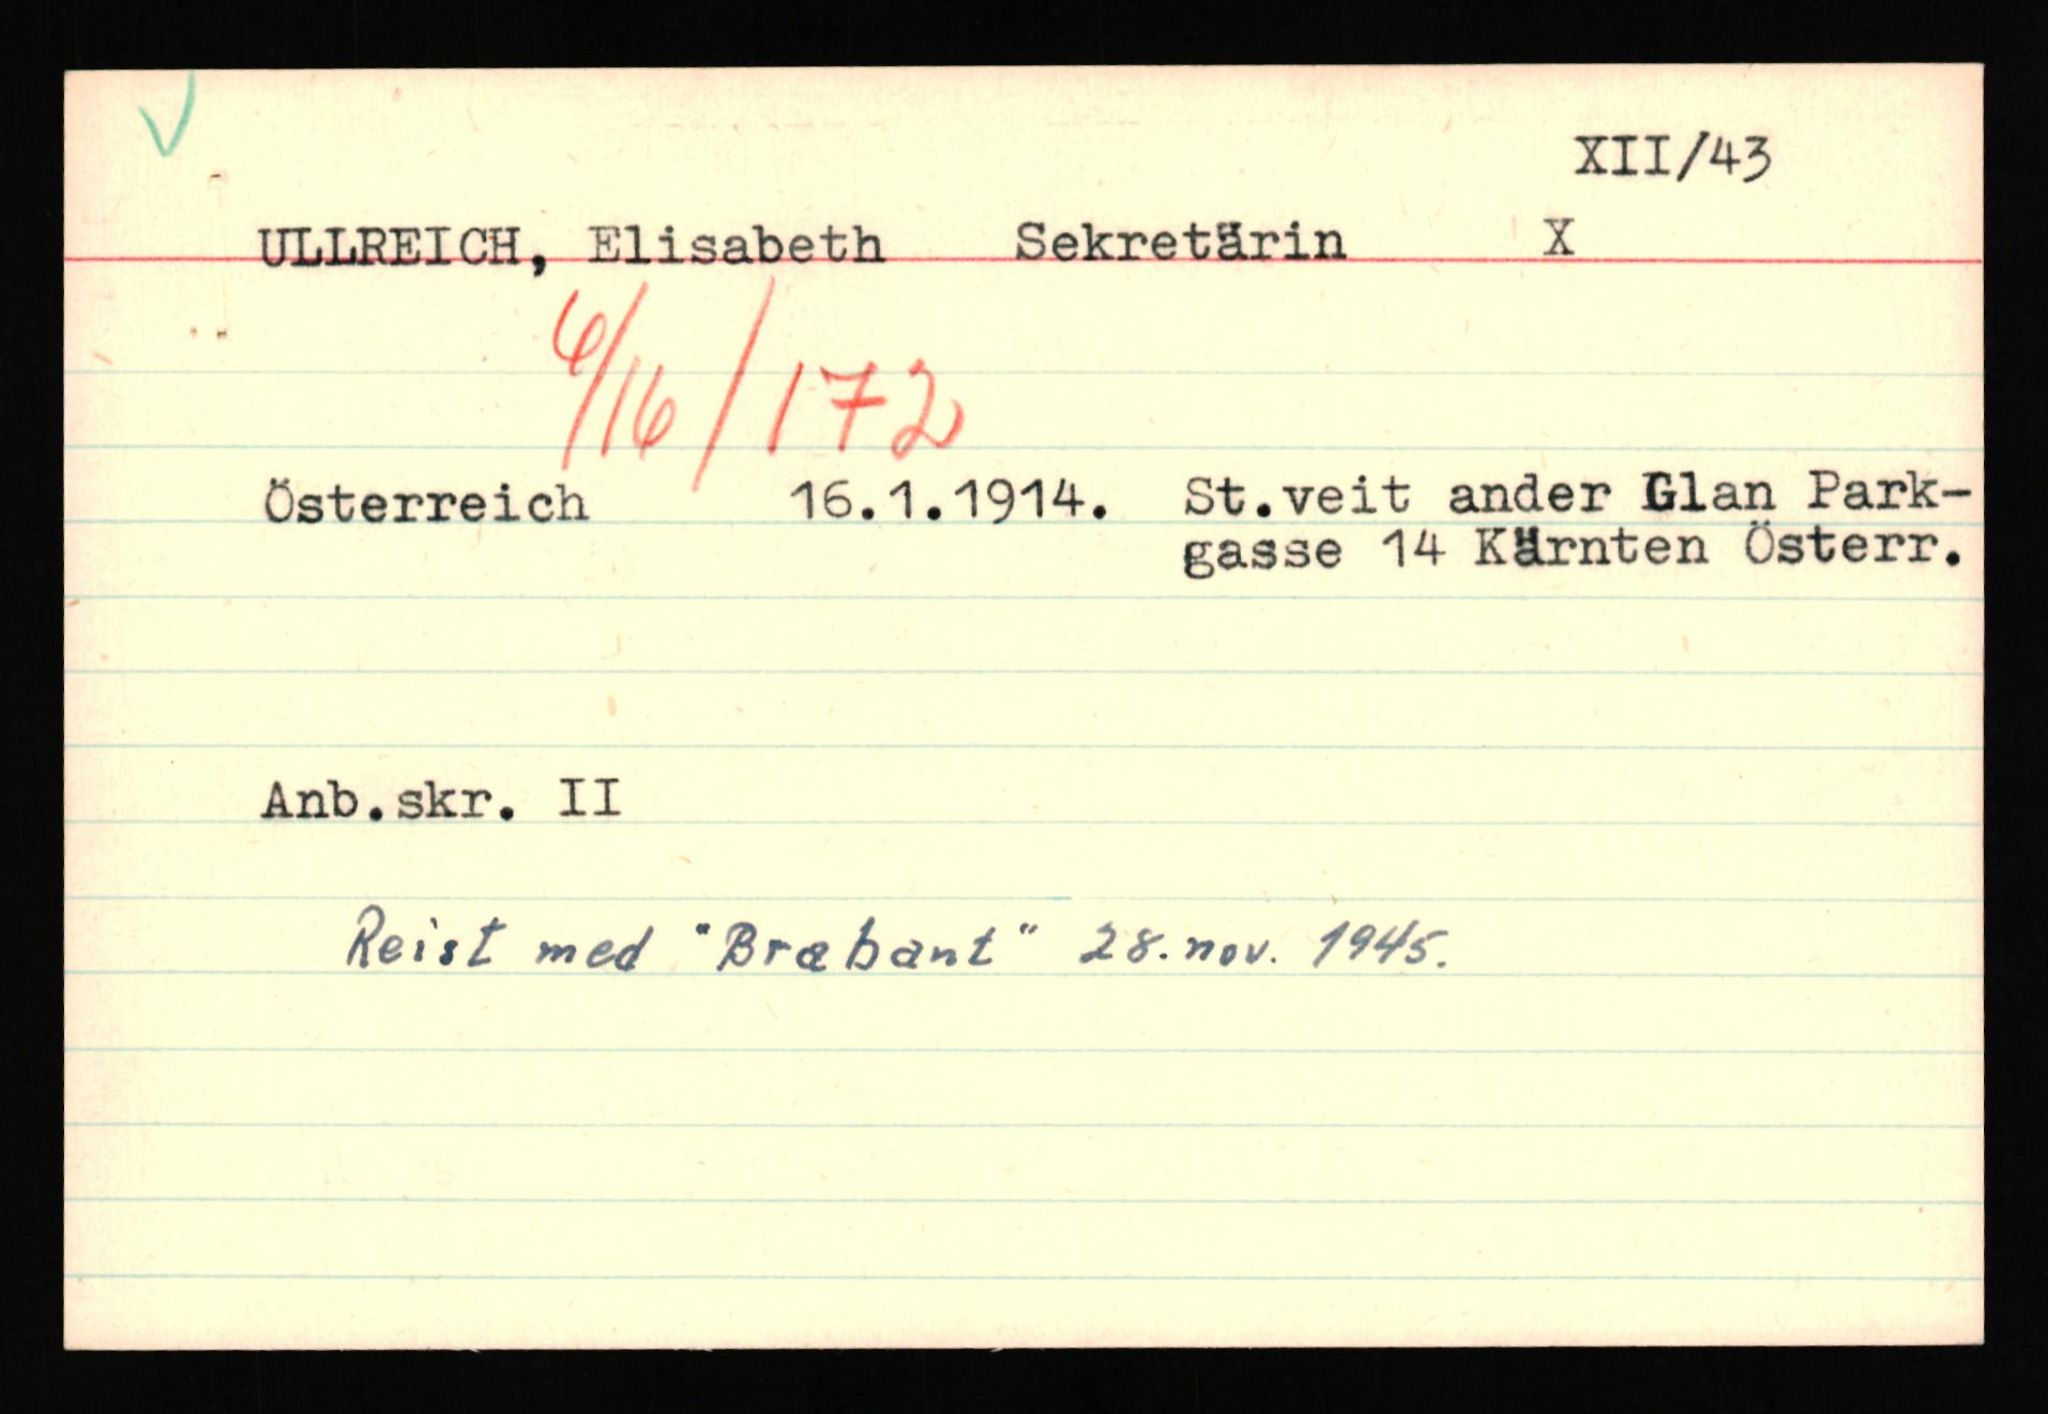 XII/43
ULLREICH, Elisabeth Sekretärin X
6/16/172
Österreich 16.1.1914. St.veit ander Glan Park-
gasse 14 Kärnten Österr.
Anb.skr. II
Reist med "Brabant" 28. nov. 1945.